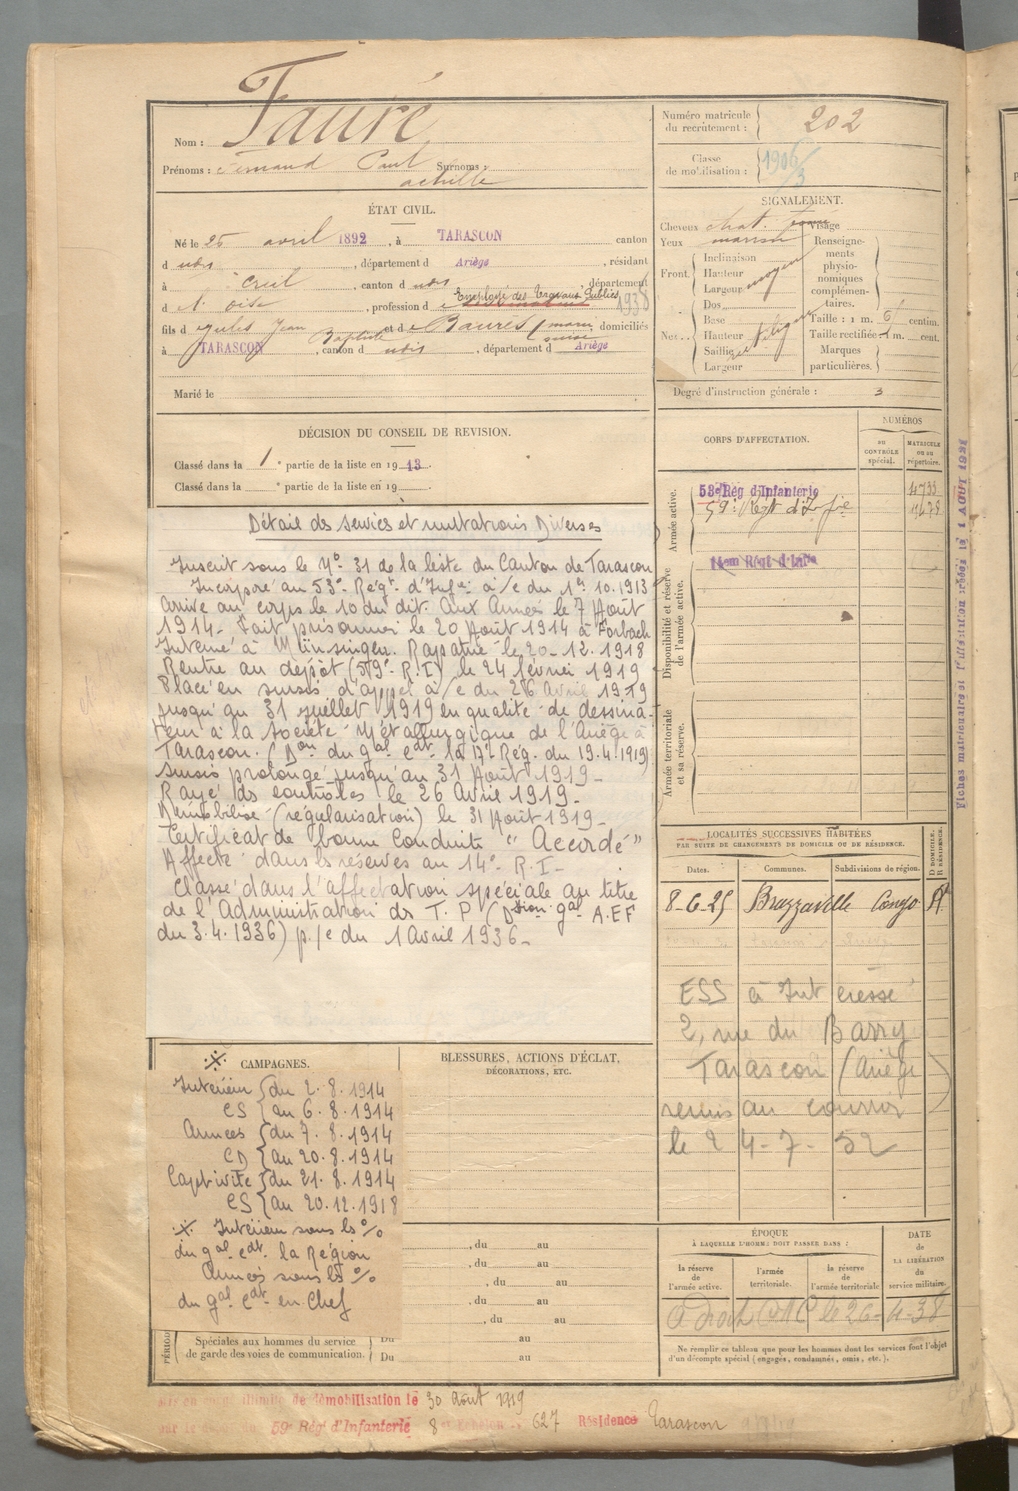 Nom : Fauré
Prénoms : Fernand Paul Surnoms :
achille
ÉTAT CIVIL.
Né le 25 avril 1892, à TARASCON canton
d udis, département d Ariège, résidant
à Creil, canton d udis département
d l'Oise, profession d e Employé des Travaux Publics 1938
fils d e Jules Jean Baptiste et de Baurès marie domiciliés
à TARASCON, canton d udis, département d Ariège
Marié le
DÉCISION DU CONSEIL DE REVISION.
Classé dans la 1e partie de la liste en 1913.
Classé dans la e partie de la liste en 19
Détail des services et mutations Diverses
Inscrit sous le N° 31 de la liste du Canton de Tarascon
Incorporé au 53e Régt d'Infie à/c du 1er.10.1913
arrivé au corps le 10 du dit. Aux Armées le 7 Août
1914. Fait prisonnier le 20 Août 1914 à Forbach
Interné à Münsingen. Rapatrié le 20-12.1918
Rentré au dépôt (59e R.I) le 24 février 1919
Placé en sursis d'appel à/c du 26 Avril 1919
jusqu'au 31 juillet 1919 en qualité de dessina-
teur à la Société Métallurgique de l'Ariège à
Tarascon. (Don du gal cdt la 17e Rég. du 19.4.1919)
Sursis prolongé jusqu'au 31 Août 1919-
Rayé des contrôles le 26 Avril 1919-
Démobilisé (régularisation) le 31 Août 1919-
Certificat de bonne Conduite "Accordé"
Affecté dans les réserves au 14e R.I-
Classé dans l'affectation spéciale au titre
de l'Administration des T.P (Dtion gal A.E.F
du 3.4.1936) p/c du 1 Avril 1936-
CAMPAGNES.
Intérieur {du 2.8.1914
CS {au 6.8.1914
Armées {du 7.8.1914
CD {au 20.8.1914
Captivité {du 21.8.1914
CS {au 20.12.1918
Intérieur sous les o/o
du gal cdt la Région
Armées sous les o/o
du gal Cdt en Chef
BLESSURES, ACTIONS D'ÉCLAT,
DÉCORATIONS, ETC.
, du au
, du au
, du au
, du au
, du au
PÉRIODES
Spéciales aux hommes du service
de garde des voies de communication.
Du au
Du au
Numéro matricule
du recrutement : 202
Classe
de mobilisation : 1906/3
SIGNALEMENT.
Cheveux chat. foncé Visage
Yeux marron
Front. Inclinaison
Hauteur
Largeur moyen
Nez.. Dos
Base
Hauteur
Saillie
Largeur
Renseigne-
ments
physio-
nomiques
complémen-
taires.
Taille : 1 m. 61 centim.
Taille rectifiée 1 m. cent.
Marques
particulières.
Degré d'instruction générale : 3
CORPS D'AFFECTATION.
NUMÉROS
AU
CONTRÔLE
spécial.
MATRICULE
OU AU
répertoire.
Armée active.
53e Rég d'Infanterie 4733
59e Régt d'Infie
Disponibilité et réserve
de l'armée active.
14em Regt d'Infie
Armée territoriale
et sa réserve.
LOCALITÉS SUCCESSIVES HABITÉES
PAR SUITE DE CHANGEMENTS DE DOMICILE OU DE RÉSIDENCE.
Dates. Communes. Subdivisions de région.
D DOMICILE.
R RÉSIDENCE.
8-6-25 Brazzaville Congo R
ESS à Intéressé
2, rue du Barry
Tarascon (Ariège)
remis au courrier
le 24-7-52
ÉPOQUE
À LAQUELLE L'HOMME DOIT PASSER DANS :
la réserve
de
l'armée active.
l'armée
territoriale.
la réserve
de
l'armée territoriale
DATE
de
LA LIBÉRATION
du
service militaire.
A droit CAC le 26-4-38
Ne remplir ce tableau que pour les hommes dont les services font l'objet
d'un décompte spécial (engagés, condamnés, omis, etc.).
Mis en congé illimité de démobilisation le 30 Août 1919
59e Rég d'Infanterie 8e échelon n° 627 Résidence Tarascon